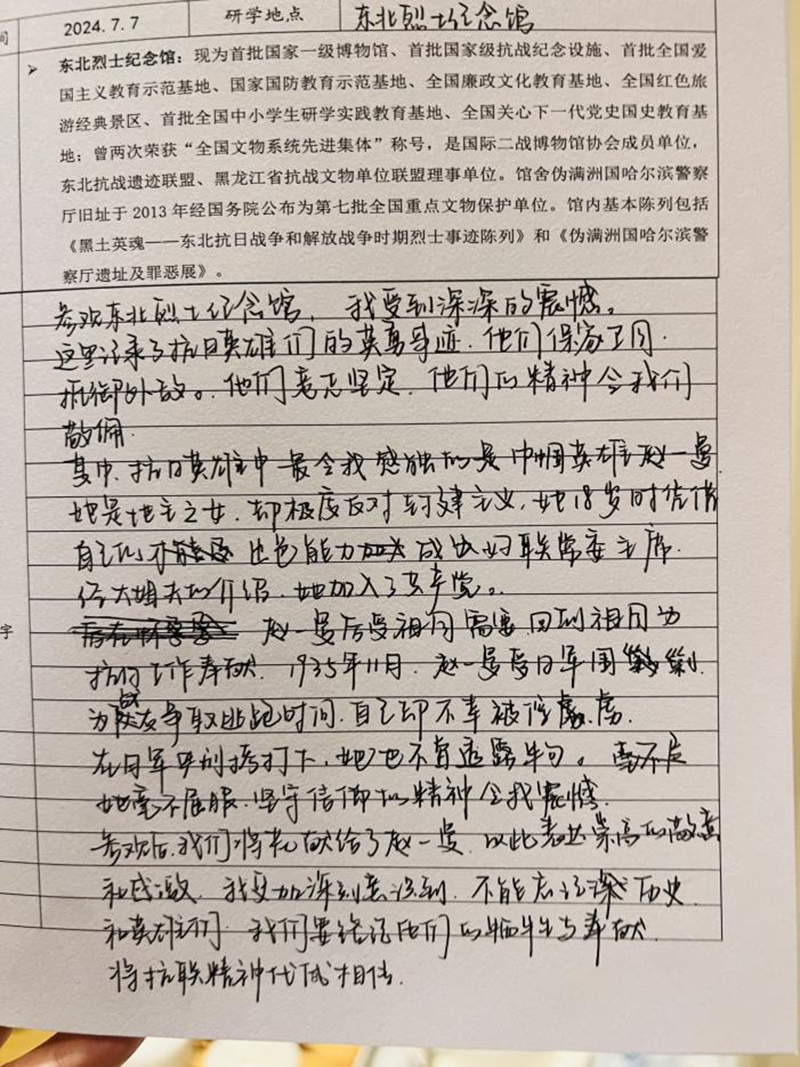 间 2024.7.7 研学地点 东北烈士纪念馆
➢ 东北烈士纪念馆：现为首批国家一级博物馆、首批国家级抗战纪念设施、首批全国爱
国主义教育示范基地、国家国防教育示范基地、全国廉政文化教育基地、全国红色旅
游经典景区、首批全国中小学生研学实践教育基地、全国关心下一代党史国史教育基
地；曾两次荣获“全国文物系统先进集体”称号，是国际二战博物馆协会成员单位，
东北抗战遗迹联盟、黑龙江省抗战文物单位联盟理事单位。馆舍伪满洲国哈尔滨警察
厅旧址于 2013 年经国务院公布为第七批全国重点文物保护单位。馆内基本陈列包括
《黑土英魂——东北抗日战争和解放战争时期烈士事迹陈列》和《伪满洲国哈尔滨警
察厅遗址及罪恶展》。
参观东北烈士纪念馆，我受到深深的震憾。
这里记录了抗日英雄们的英勇事迹.他们保家卫国.
抵御外敌。他们意志坚定.他们的精神令我们
敬佩.
其中.抗日英雄中最令我感触的是巾帼英雄赵一曼
她是地主之女.却极度反对封建主义,她18岁时凭借
自己的出色能力成为妇联常委主席.
经大姐夫的介绍.她加入了共产党。
字
赵一曼后受祖国需要.回到祖国为
抗日工作奉献.1935年11月.赵一曼与日军围剿.
为战友争取逃跑时间.自己却不幸被俘虏.
在日军严刑拷打下,她也不肯透露半句。毫不屈
她毫不屈服.坚守信仰的精神令我震憾.
参观后,我们将花献给了赵一曼.以此表达崇高的敬意
和感激.我更加深刻意识到.不能忘记历史
和英雄们.我们要铭记他们的牺牲与奉献.
将抗联精神代代相传.